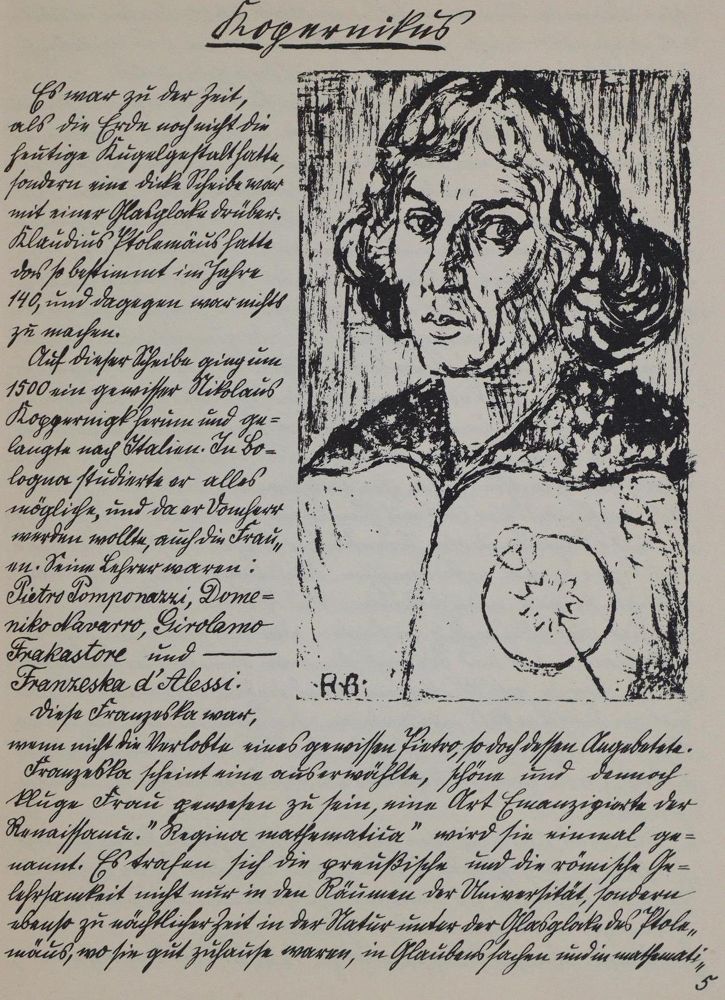 Kopernikus
Es war zu der Zeit,
als die Erde noch nicht die
heutige Kugelgestalt hatte,
sondern eine dicke Scheibe war
mit einer Glasglocke drüber.
Klaudius Ptolemäus hatte
das so bestimmt im Jahre
140, und dagegen war nichts
zu machen.
Auf dieser Scheibe ging um
1500 ein gewisser Nikolaus
Koppernigk herum und ge=
langte nach Italien. In Bo=
logna studierte er alles
mögliche, und da er Domherr
werden wollte, auch die Frau„
en. Seine Lehrer waren:
Pietro Pomponazzi, Dome=
niko Navarro, Girolamo
Frakastore und ———
Franzeska d'Alessi.
Diese Franzeska war,
wenn nicht die Verlobte eines gewissen Pietro, so doch dessen Angebetete.
Franzeska scheint eine auserwählte, schöne und dennoch
kluge Frau gewesen zu sein, eine Art Emanzipierte der
Renaissance. "Regina mathematica" wird sie einmal ge=
nannt. Es trafen sich die preußische und die römische Ge=
lehrsamkeit nicht nur in den Räumen der Universität, sondern
ebenso zu nächtlicher Zeit in der Natur unter der Glasglocke des Ptole„
mäus, wo sie gut zuhause waren, in Glaubenssachen und in mathemati„
R.B.
5